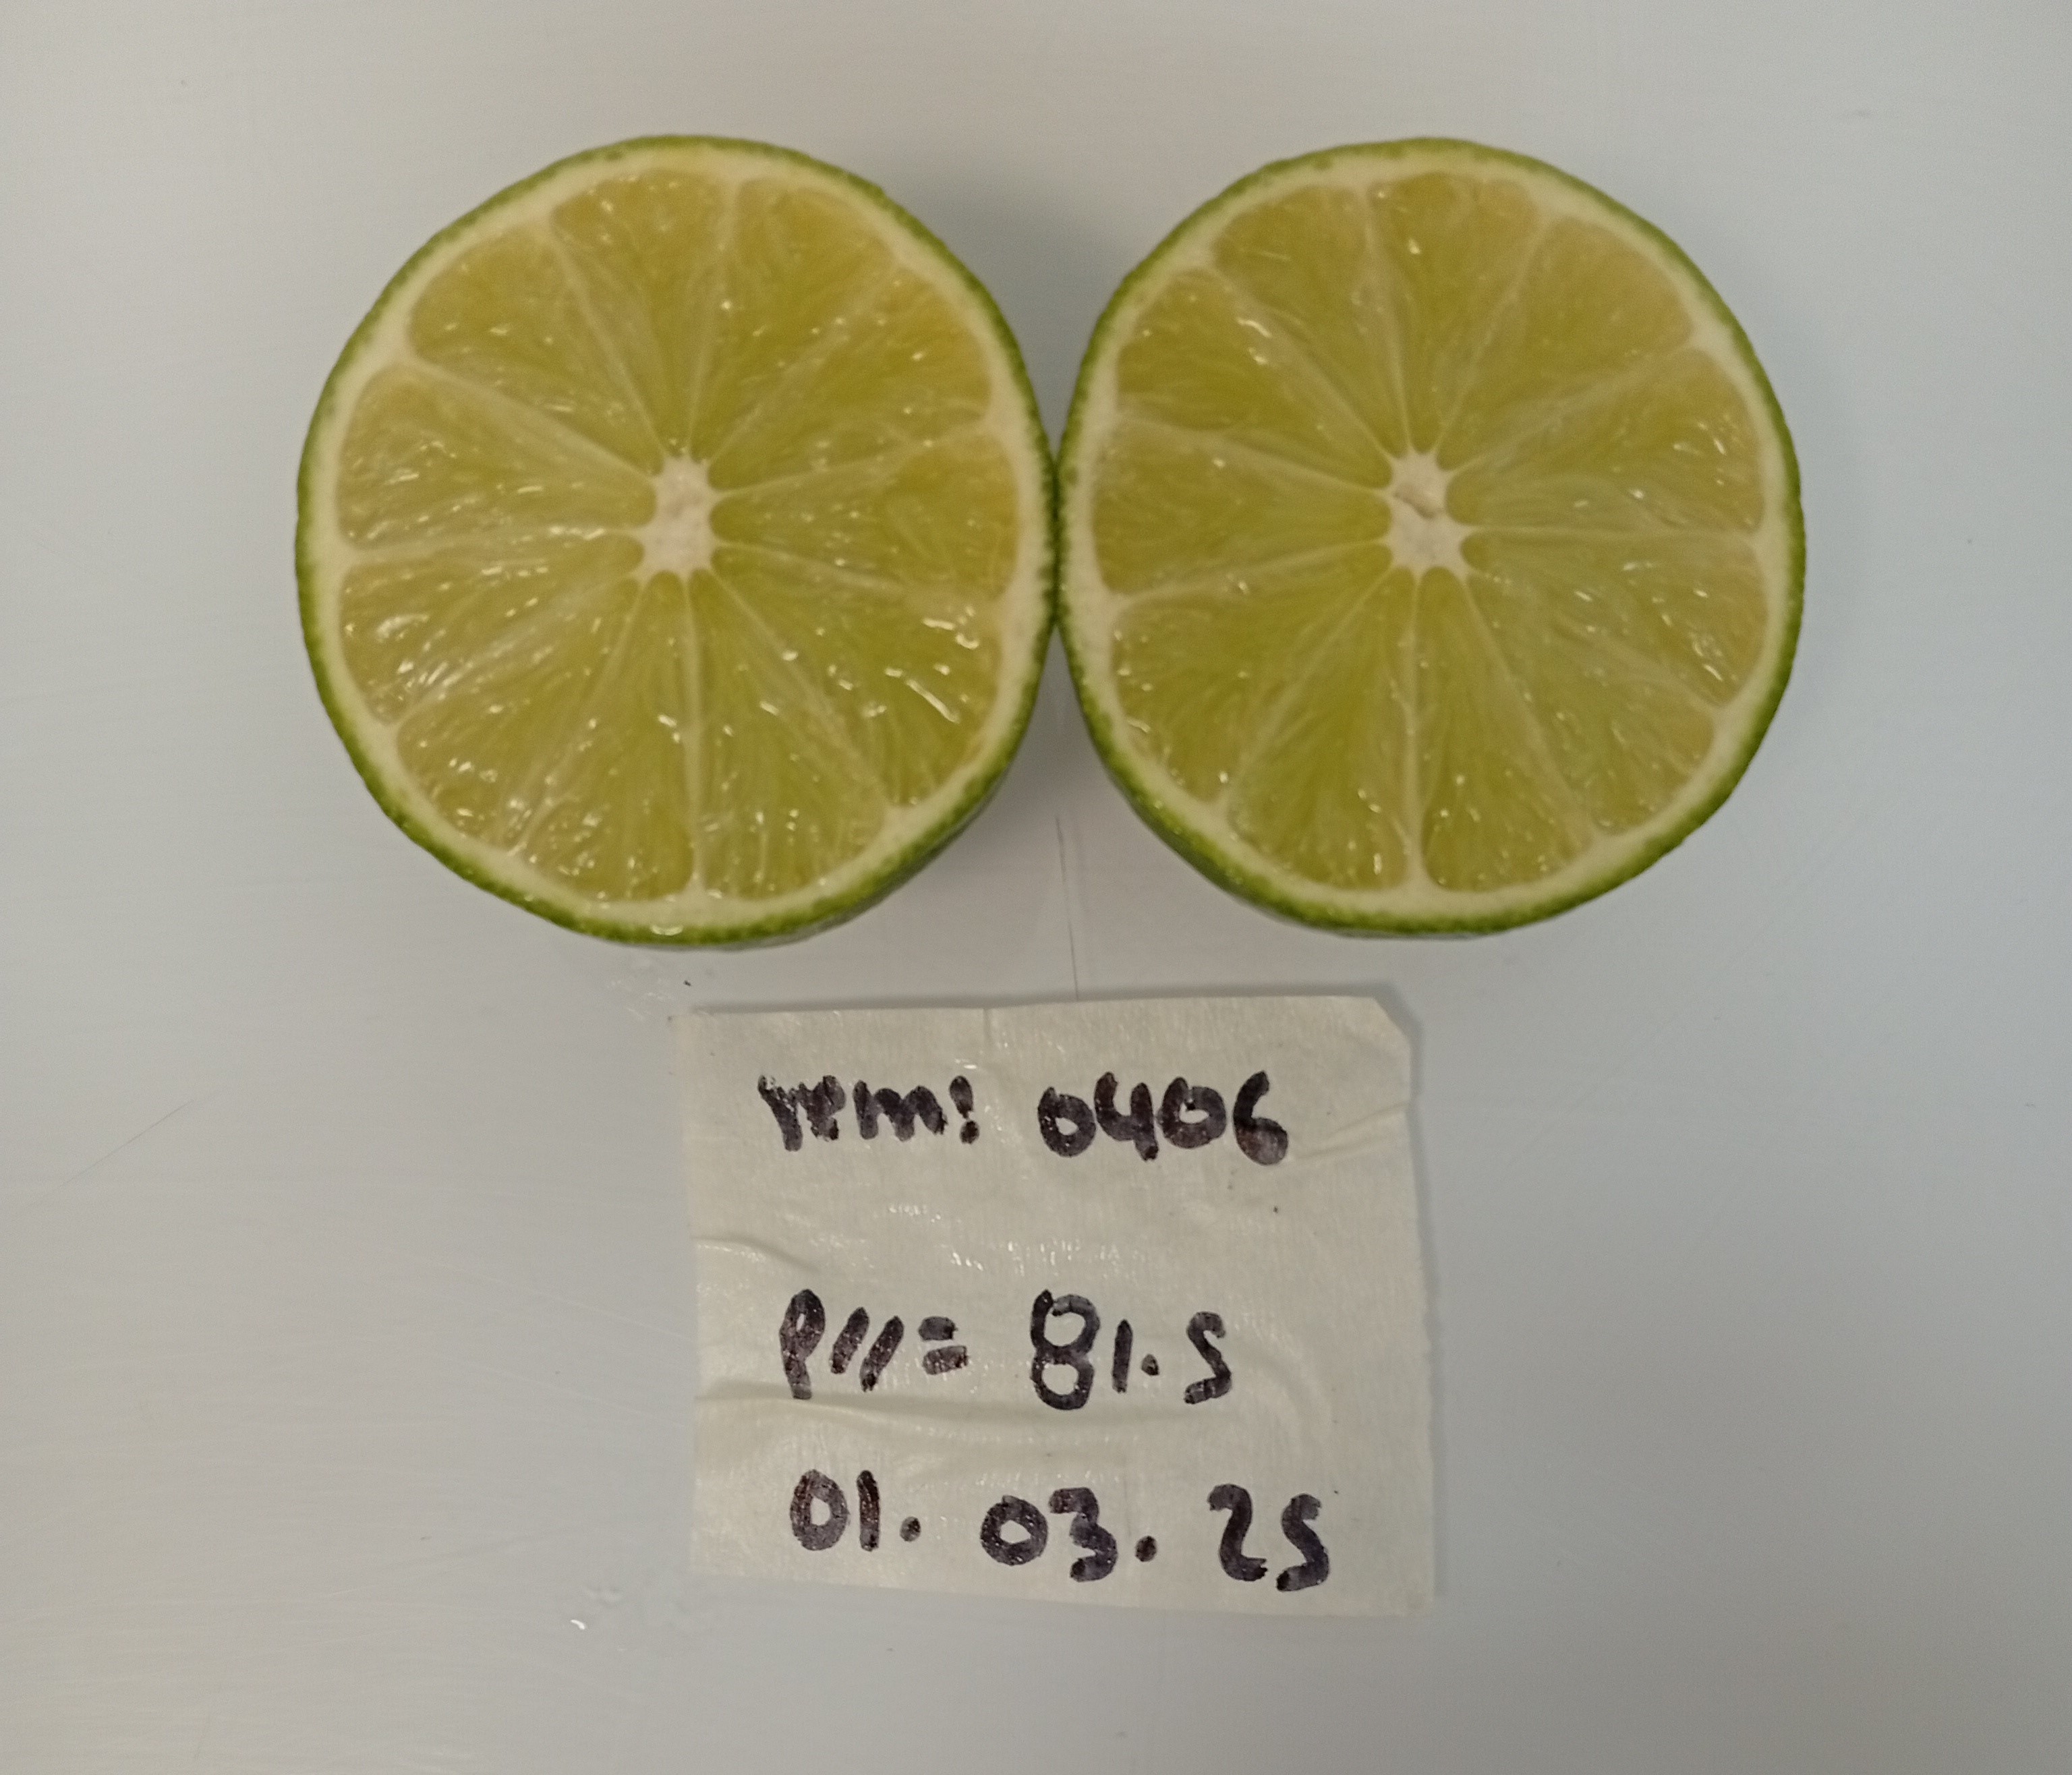 rem: 0406
P11= 81.5
01. 03. 25